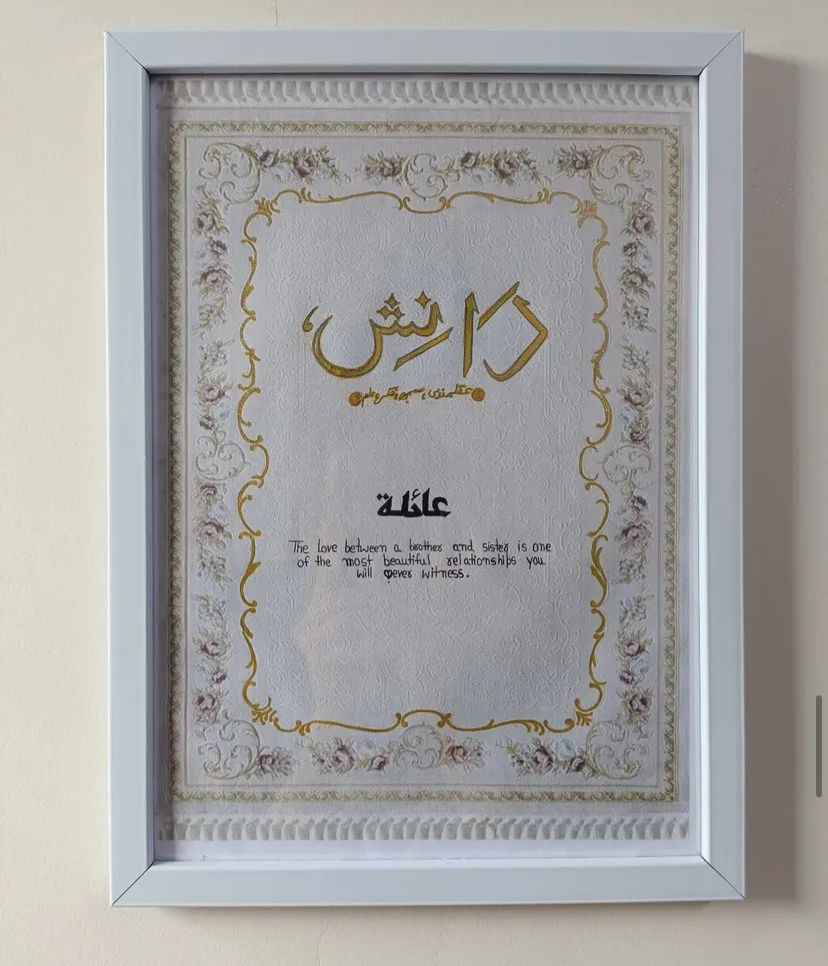 دانِش
عقلمندی، سمجھ، فکر، علم
عائلة
The love between a brother and sister is one
of the most beautiful relationships you
will ever witness.